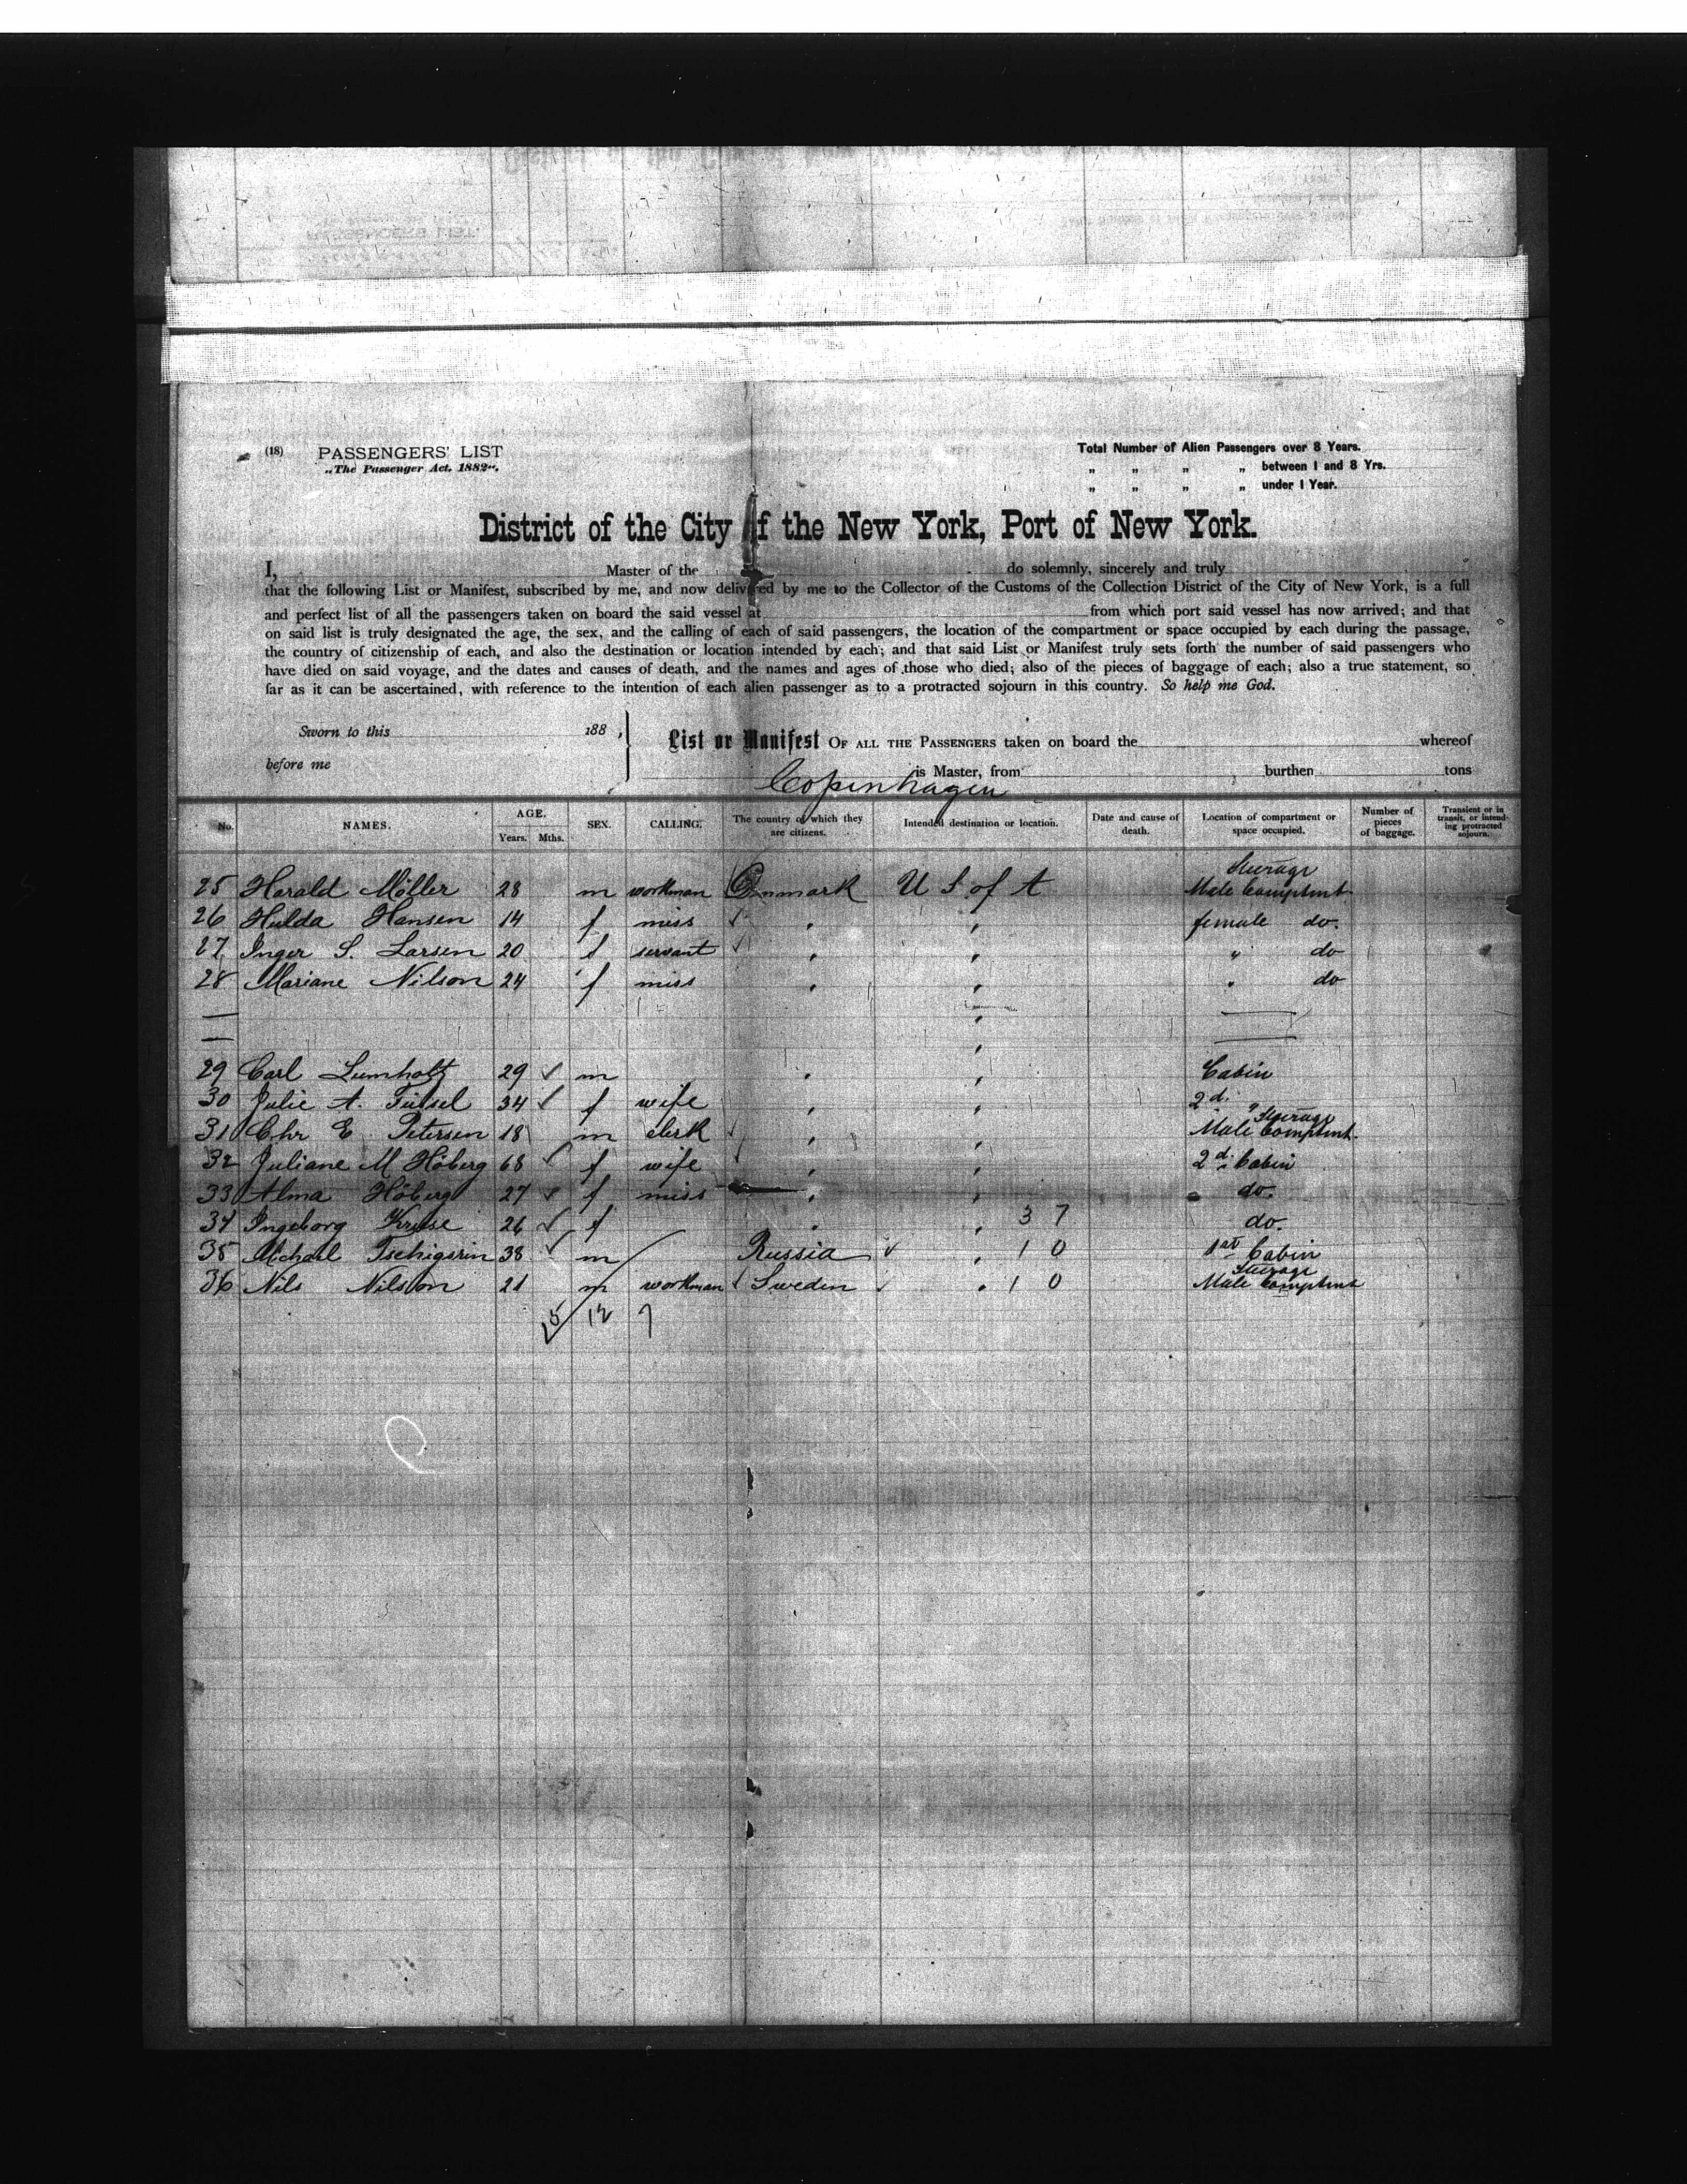 (18) PASSENGERS' LIST
„The Passenger Act. 1882".
Total Number of Alien Passengers over 8 Years.
„ „ „ „ between 1 and 8 Yrs.
„ „ „ „ under 1 Year.
District of the City of the New York, Port of New York.
I, Master of the do solemnly, sincerely and truly
that the following List or Manifest, subscribed by me, and now delivered by me to the Collector of the Customs of the Collection District of the City of New York, is a full
and perfect list of all the passengers taken on board the said vessel at from which port said vessel has now arrived; and that
on said list is truly designated the age, the sex, and the calling of each of said passengers, the location of the compartment or space occupied by each during the passage,
the country of citizenship of each, and also the destination or location intended by each; and that said List or Manifest truly sets forth the number of said passengers who
have died on said voyage, and the dates and causes of death, and the names and ages of those who died; also of the pieces of baggage of each; also a true statement, so
far as it can be ascertained, with reference to the intention of each alien passenger as to a protracted sojourn in this country. So help me God.
Sworn to this 188 ,
before me
List or Manifest OF ALL THE PASSENGERS taken on board the whereof
is Master, from burthen tons
Copenhagen
No. NAMES. AGE. Years. Mths. SEX. CALLING. The country of which they are citizens. Intended destination or location. Date and cause of death. Location of compartment or space occupied. Number of pieces of baggage. Transient or in transit, or intending protracted sojourn.
25 Harald Möller 28 m workman Denmark U S of A Steerage Male Comptmt.
26 Hulda Hansen 14 f miss " " female do.
27 Inger S. Larsen 20 f servant " " " do
28 Mariane Nilson 24 f miss " " " do
— " —
— " —
29 Carl Lumholtz 29 ✓ m " " Cabin
30 Julie A. 34 ✓ f wife " " 2d. "
31 Chr E Petersen 18 m clerk " " Steerage Male Comptmt.
32 Juliane M Höberg 68 ✓ f wife " " 2d. Cabin
33 Alma Höberg 27 ✓ f miss " " do.
34 Ingeborg Kruse 26 ✓ f " " 3 7 do.
35 Michael Tschigirin 38 ✓ m Russia ✓ " 1 0 1st Cabin
36 Nils Nilson 21 m workman Sweden ✓ " 1 0 Steerage Male Comptmt
15/ 12 7